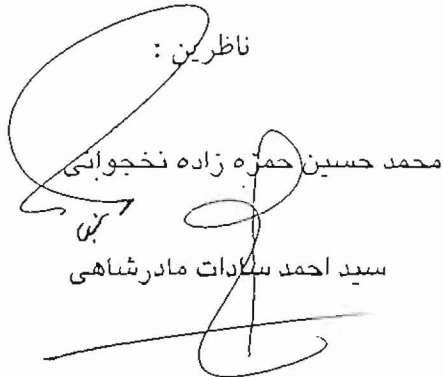 ناظرین :
محمد حسین حمزه زاده نخجوانی
سید احمد سادات مادرشاهی